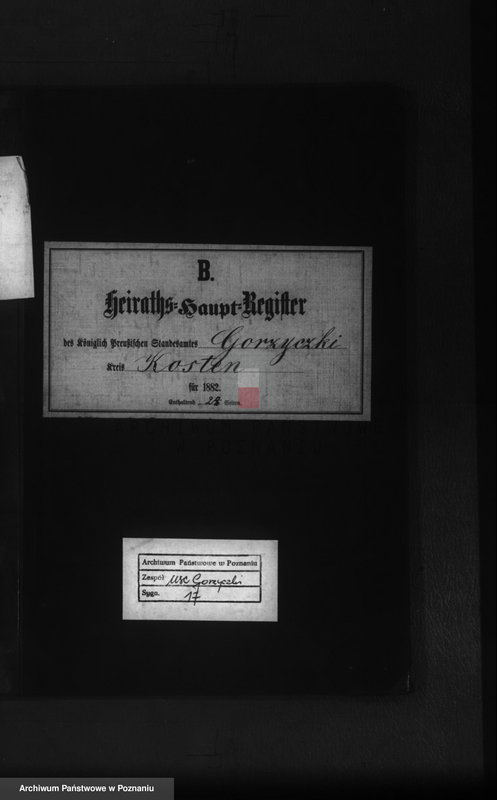 B.
Heiraths-Haupt-Register
des Königlich Preußischen Standesamtes Gorzyczki
Kreis Kosten
für 1882.
Enthaltend Seiten.
ARCHIWUM PAŃSTWOWE
W POZNANIU
Archiwum Państwowe w Poznaniu
Zespół USC Gorzyczki
Sygn. 17
Archiwum Państwowe w Poznaniu